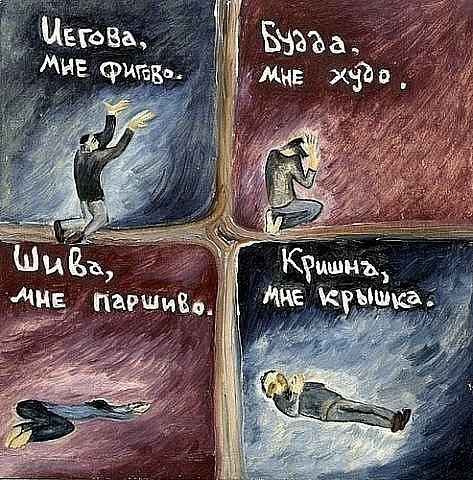 Иегова,
мне фигово.
Будда,
мне худо.
Шива,
мне паршиво.
Кришна,
мне крышка.